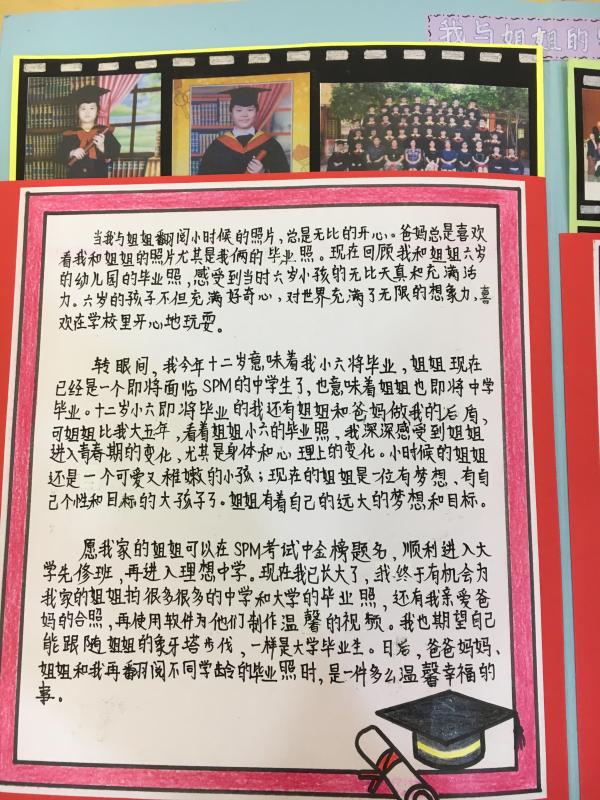 我与姐姐的
当我与姐姐翻阅小时候的照片，总是无比的开心。爸妈总是喜欢
看我和姐姐的照片尤其是我俩的毕业照。现在回顾我和姐姐六岁
的幼儿园的毕业照，感受到当时六岁小孩的无比天真和充满活
力。六岁的孩子不但充满好奇心，对世界充满了无限的想象力，喜
欢在学校里开心地玩耍。
转眼间，我今年十二岁意味着我小六将毕业，姐姐现在
已经是一个即将面临SPM的中学生了，也意味着姐姐也即将中学
毕业。十二岁小六即将毕业的我还有姐姐和爸妈做我的后盾，
可姐姐比我大五年，看着姐姐小六的毕业照，我深深感受到姐姐
进入青春期的变化，尤其是身体和心理上的变化。小时候的姐姐
还是一个可爱又稚嫩的小孩；现在的姐姐是一位有梦想、有自
己个性和目标的大孩子了。姐姐有着自己的远大的梦想和目标。
愿我家的姐姐可以在SPM考试中金榜题名，顺利进入大
学先修班，再进入理想中学。现在我已长大了，我终于有机会为
我家的姐姐拍很多很多的中学和大学的毕业照，还有我亲爱爸
妈的合照，再使用软件为他们制作温馨的视频。我也期望自己
能跟随姐姐的象牙塔步伐，一样是大学毕业生。日后，爸爸妈妈、
姐姐和我再翻阅不同学龄的毕业照时，是一件多么温馨幸福的
事。